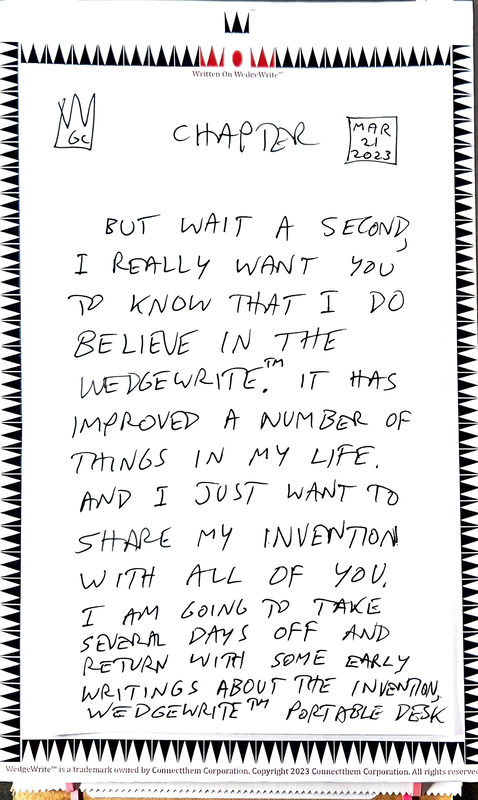 Written On WedgeWrite™
GC
CHAPTER
MAR
21
2023
BUT WAIT A SECOND,
I REALLY WANT YOU
TO KNOW THAT I DO
BELIEVE IN THE
WEDGEWRITE.™ IT HAS
IMPROVED A NUMBER OF
THINGS IN MY LIFE.
AND I JUST WANT TO
SHARE MY INVENTION
WITH ALL OF YOU.
I AM GOING TO TAKE
SEVERAL DAYS OFF AND
RETURN WITH SOME EARLY
WRITINGS ABOUT THE INVENTION,
WEDGEWRITE™ PORTABLE DESK
WedgeWrite™ is a trademark owned by Connectthem Corporation. Copyright 2023 Connectthem Corporation. All rights reserved